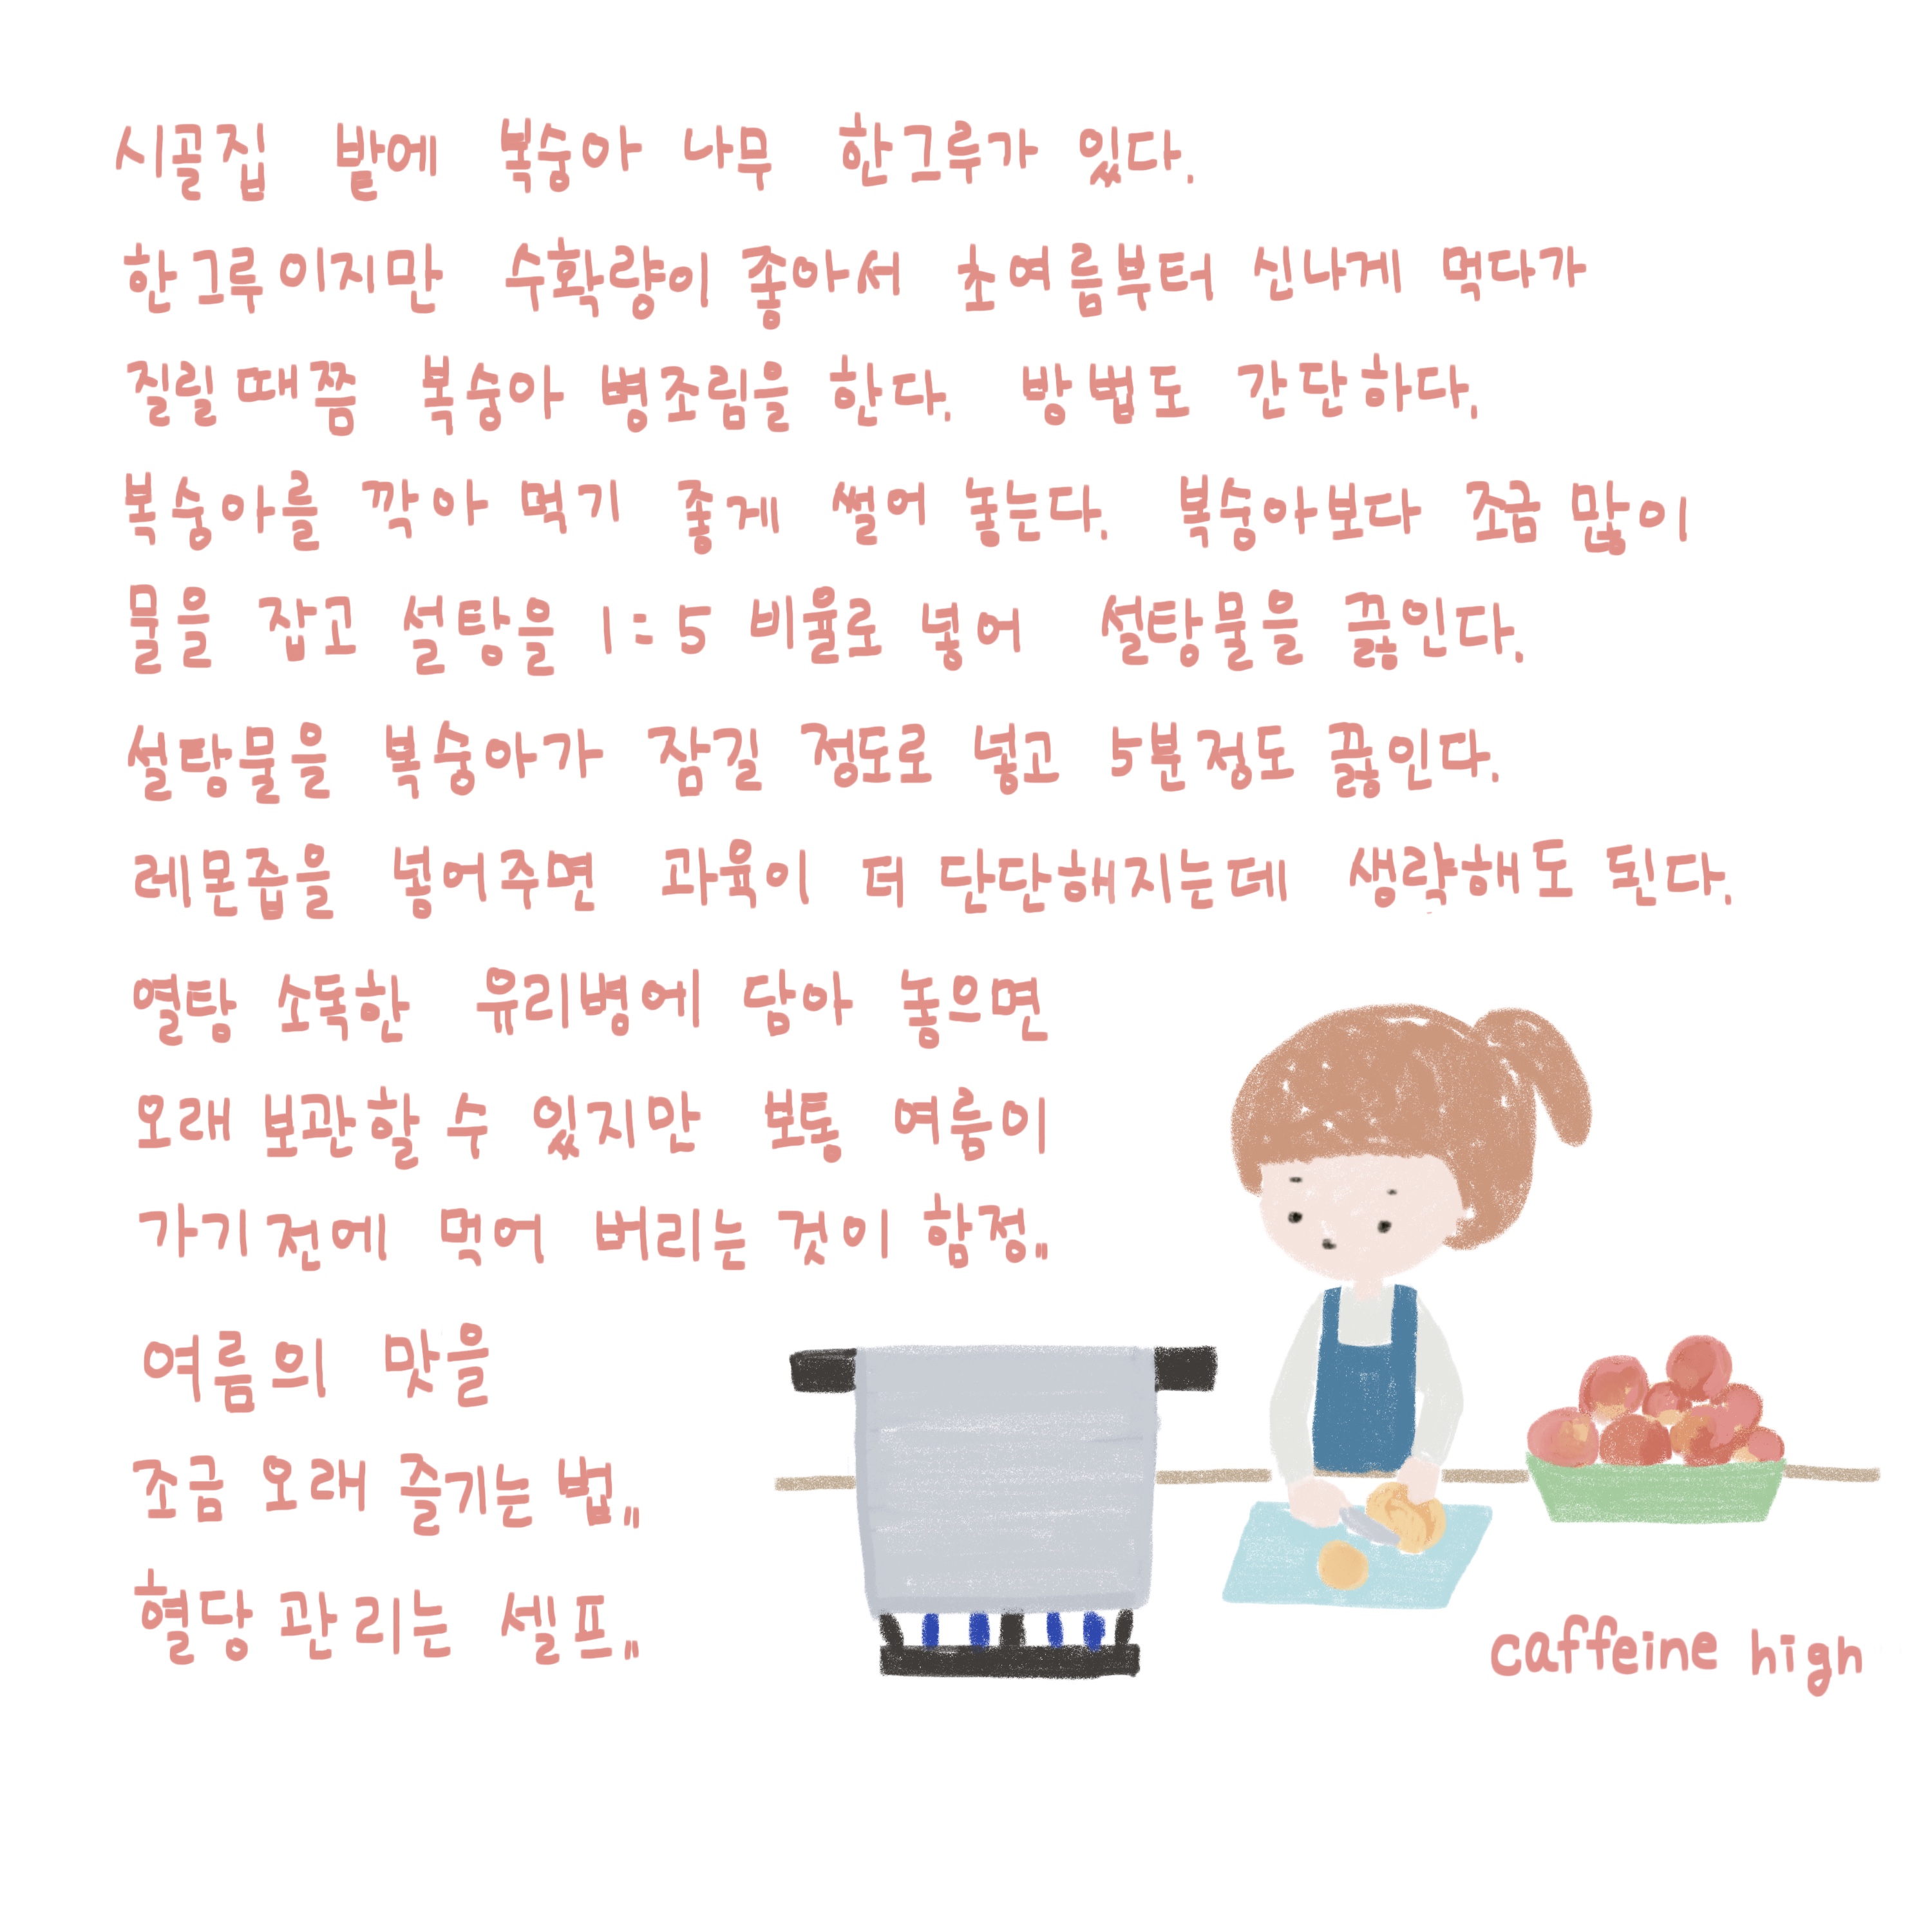 시골집 밭에 복숭아 나무 한그루가 있다.
한그루이지만 수확량이 좋아서 초여름부터 신나게 먹다가
질릴때쯤 복숭아 병조림을 한다. 방법도 간단하다.
복숭아를 깍아 먹기 좋게 썰어 놓는다. 복숭아보다 조금 많이
물을 잡고 설탕을 1:5 비율로 넣어 설탕물을 끓인다.
설탕물을 복숭아가 잠길 정도로 넣고 5분정도 끓인다.
레몬즙을 넣어주면 과육이 더 단단해지는데 생략해도 된다.
열탕 소독한 유리병에 담아 놓으면
오래 보관할 수 있지만 보통 여름이
가기전에 먹어 버리는 것이 함정..
여름의 맛을
조금 오래 즐기는 법..
혈당 관리는 셀프..
caffeine high